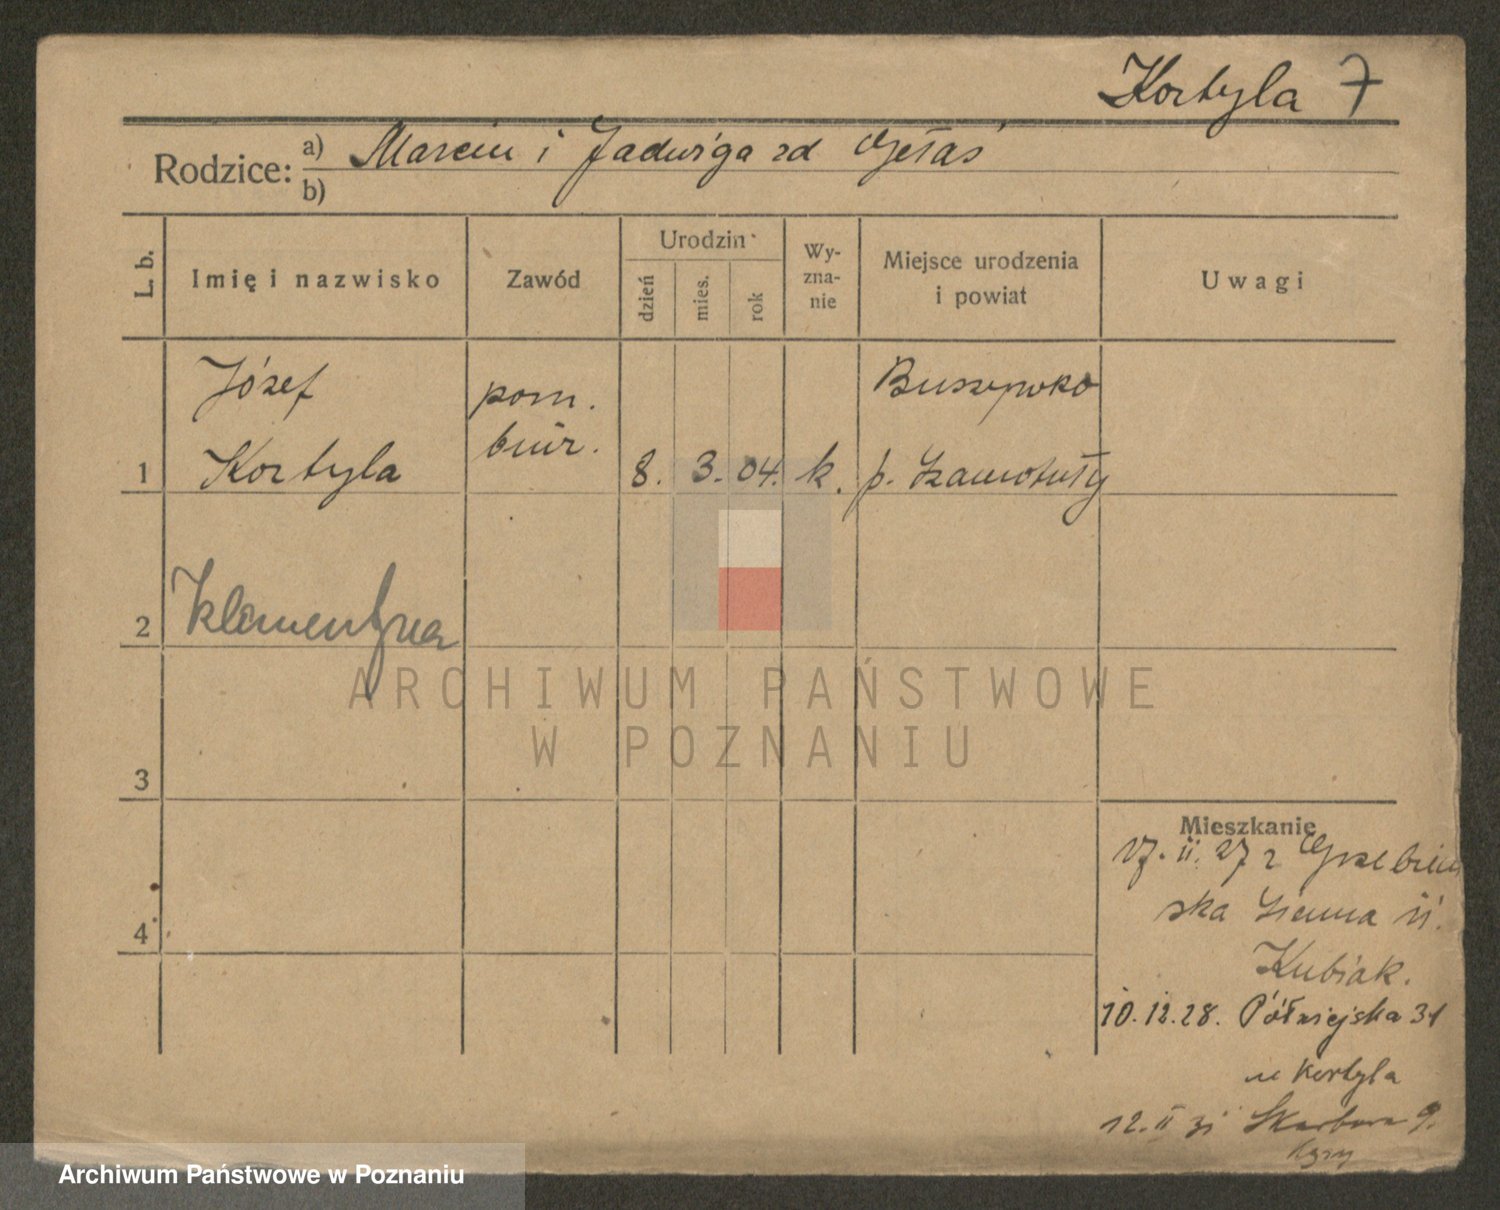 Kortyla 7
Rodzice: a) Marcin i Jadwiga zd Gełaś
b)
L. b. Imię i nazwisko Zawód Urodzin dzień mies. rok Wy-zna-nie Miejsce urodzenia i powiat Uwagi
Józef pom. Buszewko
1 Kortyla biur. 8. 3. 04. k. p. Szamotuły
2 Klementyna
3
4
Mieszkanie
17. II. 27 z Grzebieni
ska Sienna II.
Kubiak.
10.12.28. Półwiejska 31
u Kortyla
12. II 31 Skarbowa 9.
ARCHIWUM PAŃSTWOWE
W POZNANIU
Archiwum Państwowe w Poznaniu